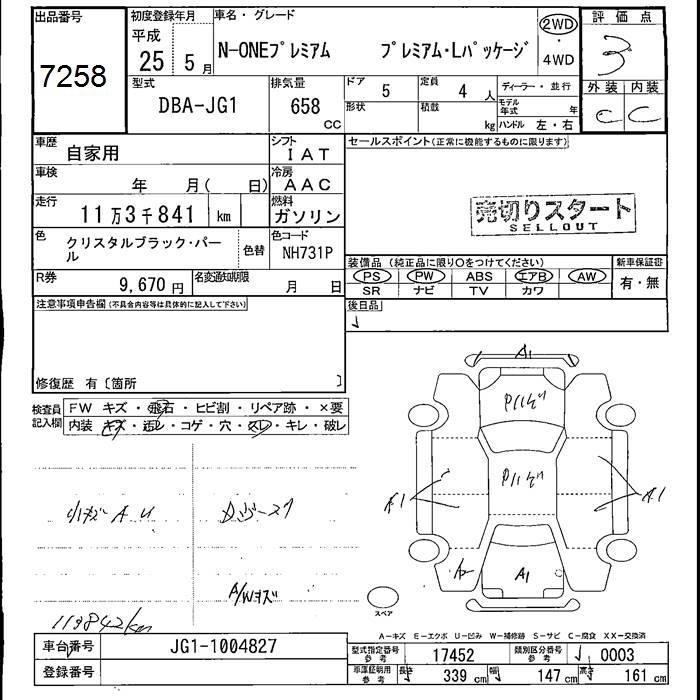 出品番号
7258
初度登録年月
平成
25 5月
車名・グレード
N-ONEプレミアム プレミアム・Lパッケージ
2WD
・
4WD
評価点
3
外装 内装
C C
型式
DBA-JG1
排気量
658
CC
ドア
5
定員
4人
ディーラー・並行
形状
積載
kg
モデル年式 年
ハンドル 左・右
車歴
自家用
シフト
IAT
車検
年 月( 日)
冷房
AAC
走行
11万3千841 km
燃料
ガソリン
色
クリスタルブラック・パール
色替
色コード
NH731P
R券
9,670円
名変通知期限
月 日
セールスポイント(正常に機能するものに限ります)
売切りスタート
SELLOUT
装備品(純正品に限り○をつけてください)
新車保証書
PS PW ABS エアB AW
SR ナビ TV カワ
有・無
後日品
注意事項申告欄(不具合内容等は具体的に記入して下さい)
修復歴 有〔箇所 〕
検査員
記入欄
FW キズ・飛石・ヒビ割・リペア跡・×要
内装 キズ・汚レ・コゲ・穴・スレ・キレ・破レ
小キズ A U
A/Wキズ
113842km
A1
A1
A1
A2
A1
スペア
A-キズ E-エクボ U-凹み W-補修跡 S-サビ C-腐食 XX-交換済
車台番号
JG1-1004827
登録番号
型式指定番号
参考
17452
類別区分番号
参考
0003
車庫証明用
参考
長さ
339 cm
幅
147 cm
高さ
161 cm